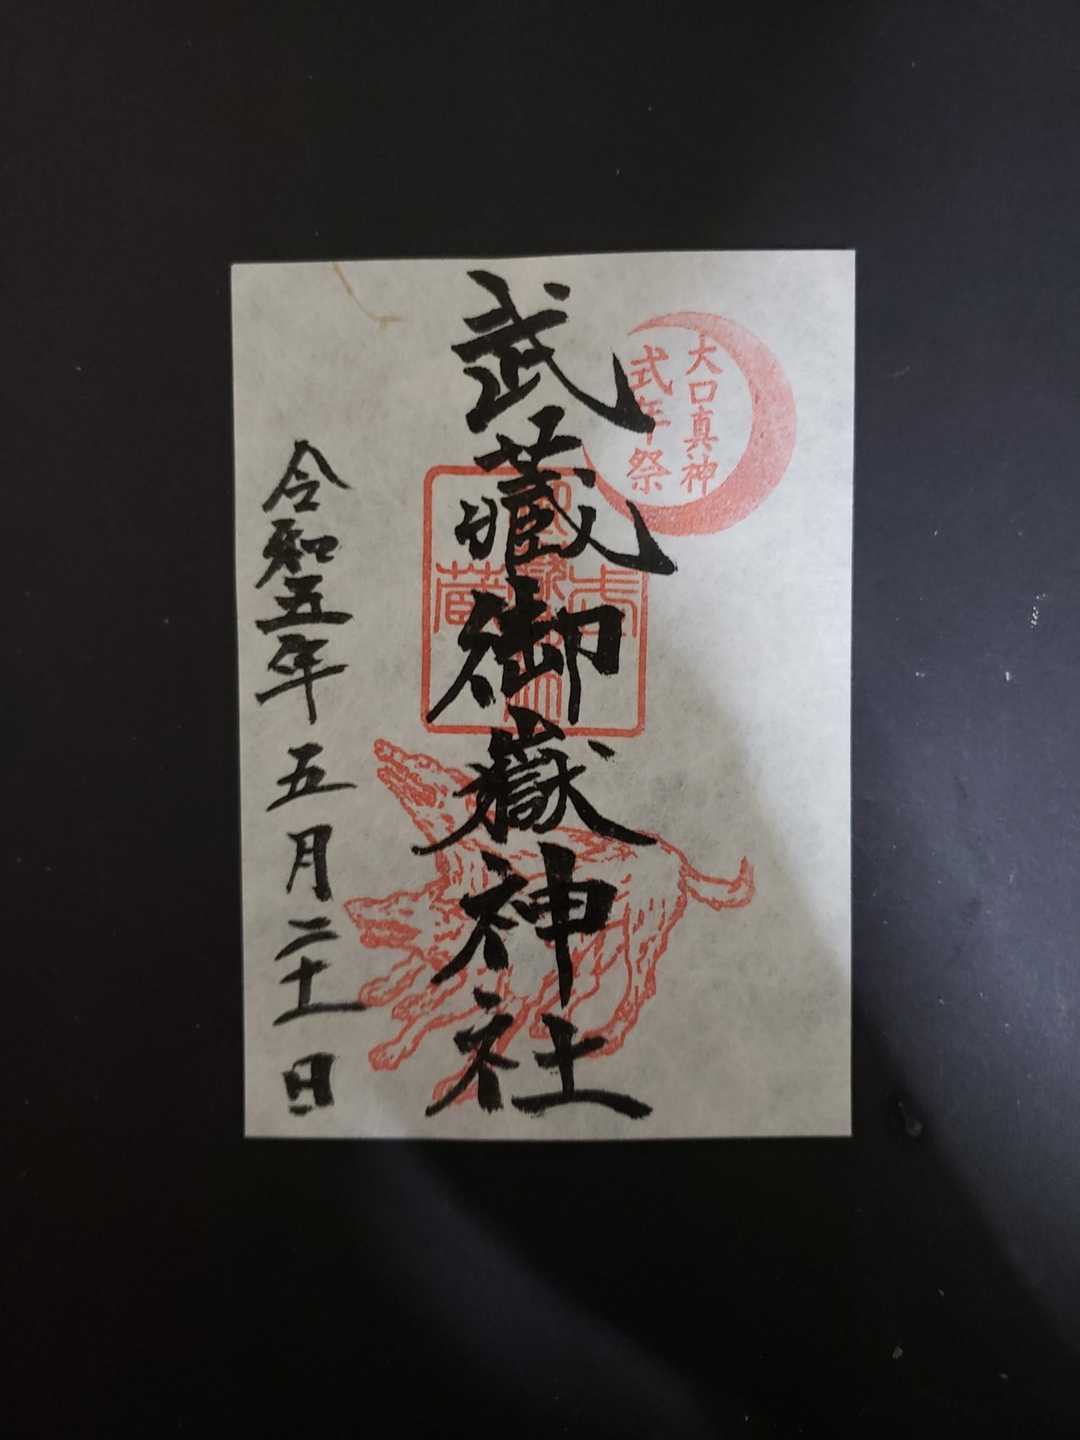 大口真神
式年祭
武藏御嶽神社
令和五年五月二十一日